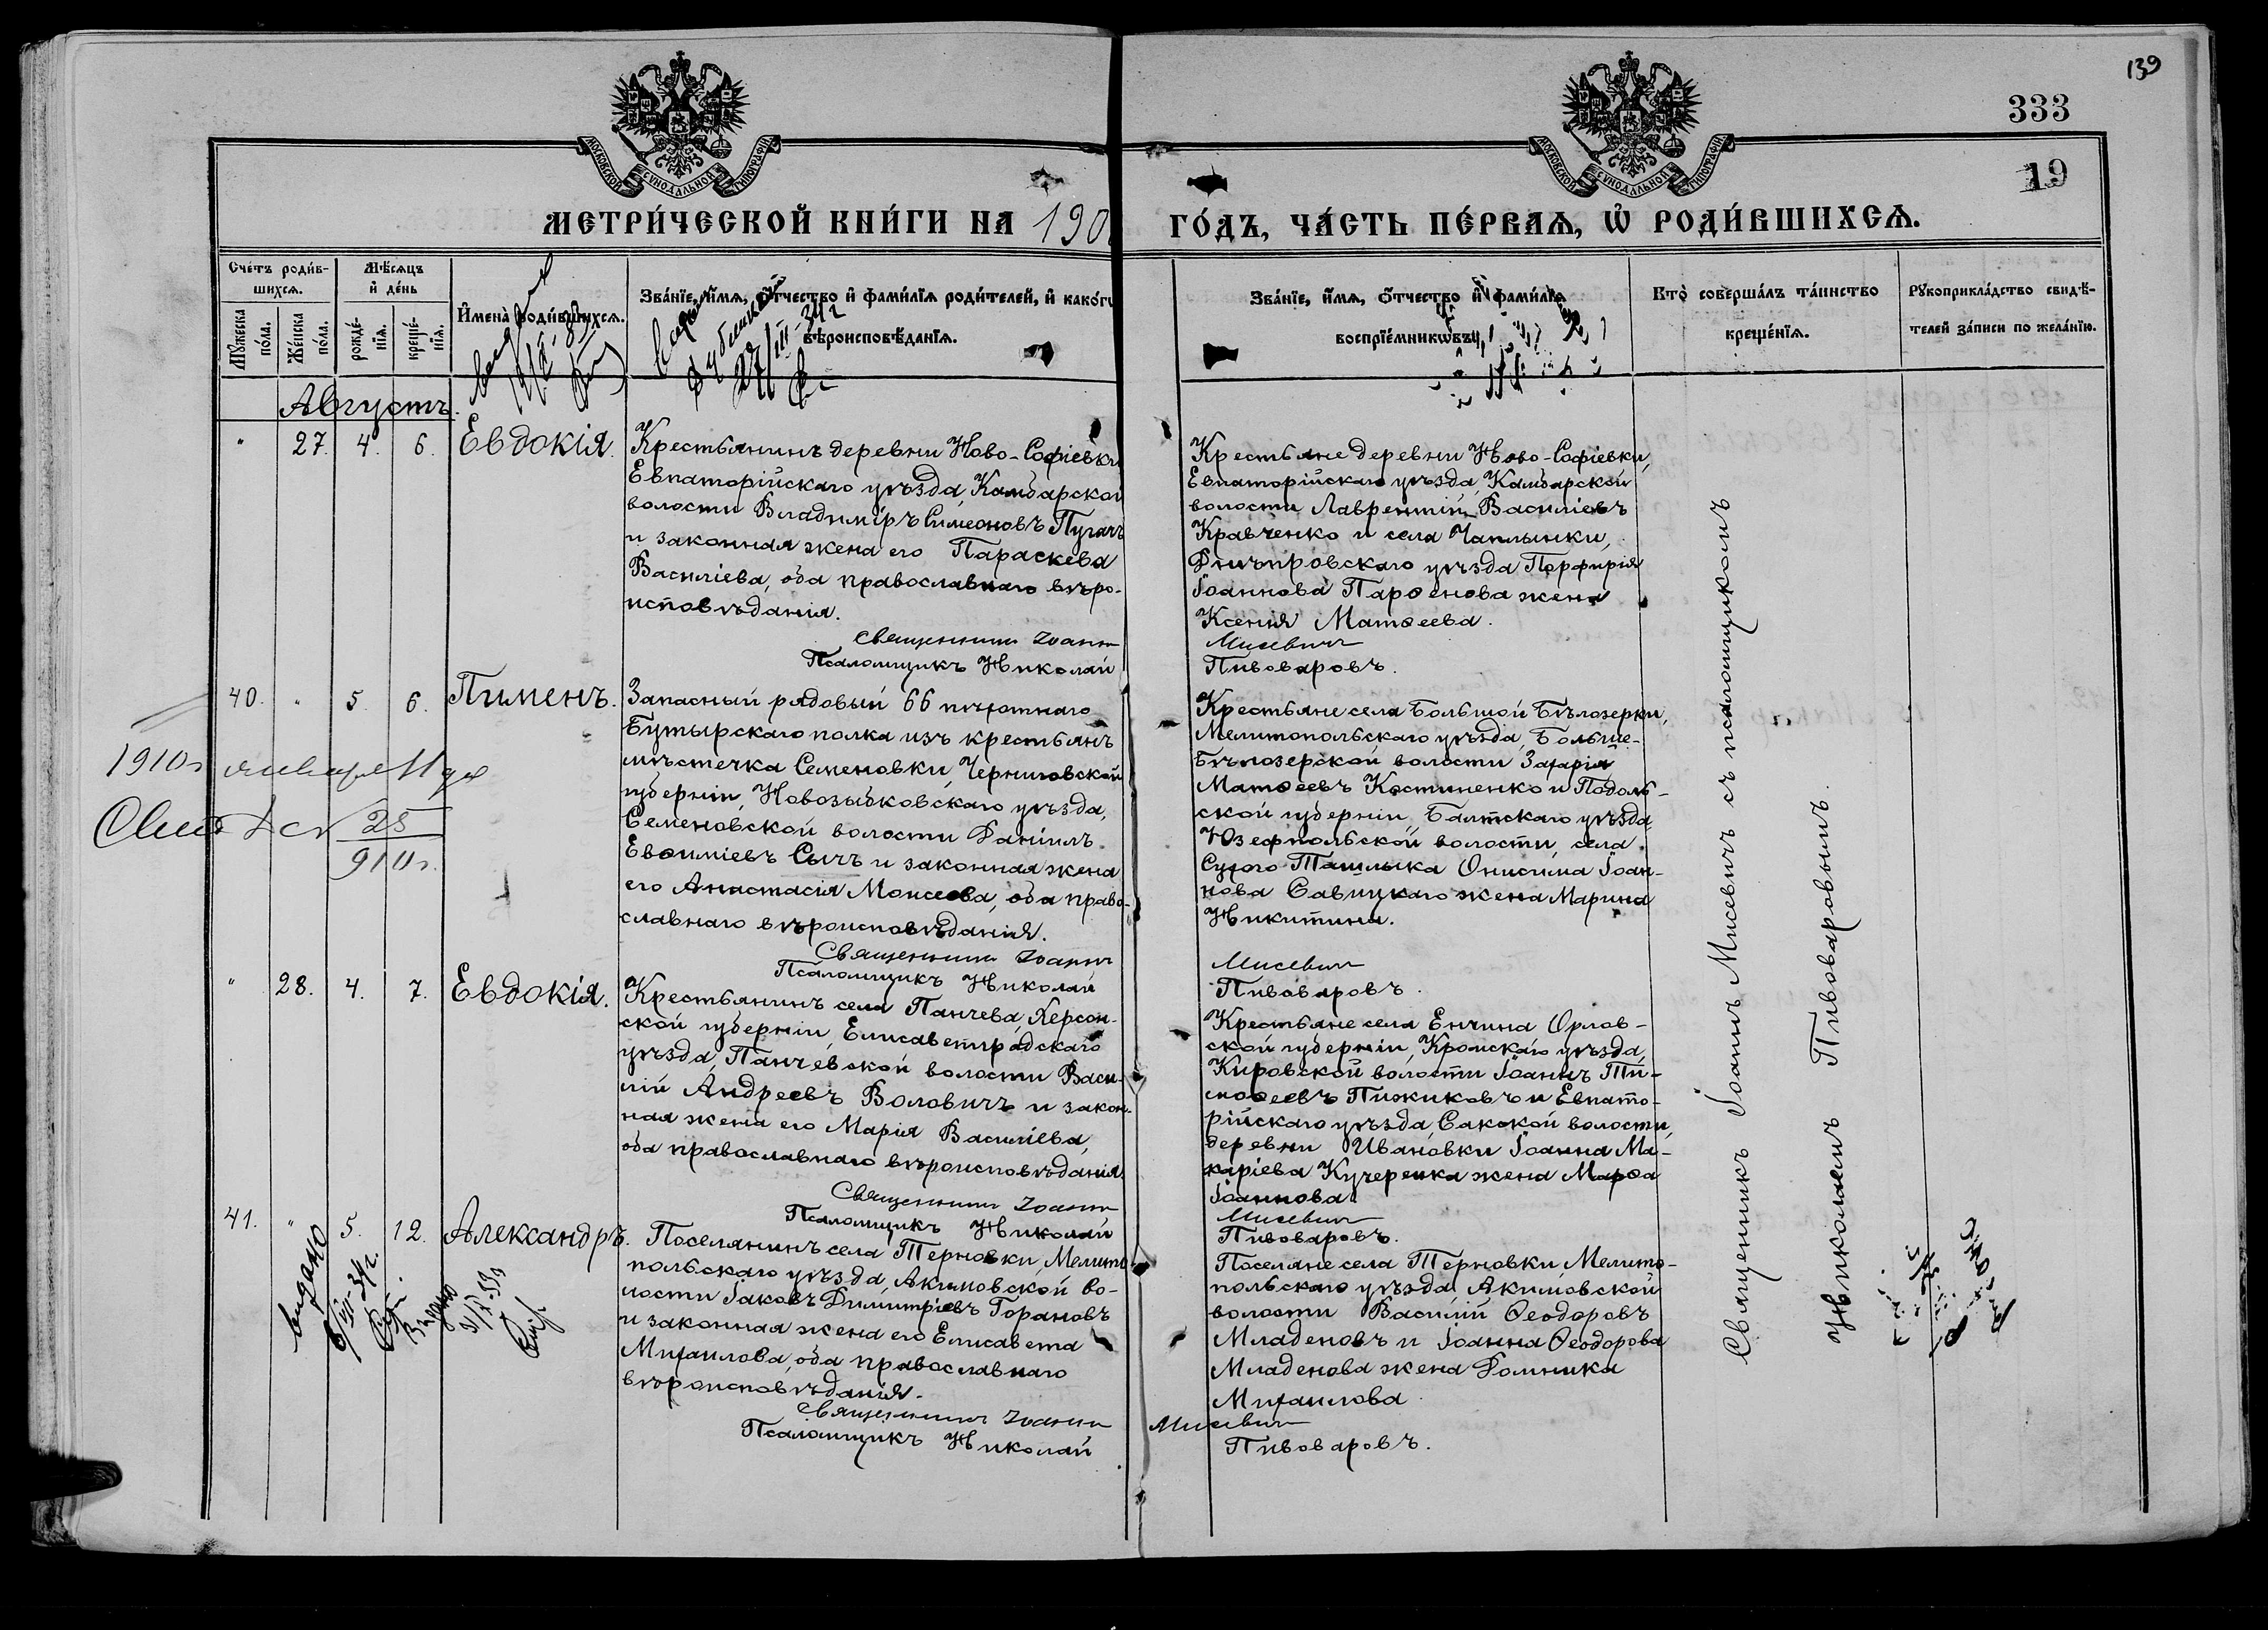 139
333
19
МОСКОВСКОЙ СѴНОДАЛЬНОЙ ТИПОГРАФІИ
МОСКОВСКОЙ СѴНОДАЛЬНОЙ ТИПОГРАФІИ
МЕТРИ́ЧЕСКОЙ КНИ́ГИ НА 190
ГО́ДЪ, ЧА́СТЬ ПЕ́РВАѦ, Ѡ҆ РОДИ́ВШИХСѦ.
Сче́тъ роди́в-
шихсѧ.
Мꙋ́жеска по́ла.
Же́нска по́ла.
Мѣ́сѧцъ
и҆ де́нь
рожде́-
нїѧ.
креще́-
нїѧ.
И҆мена̀ роди́вшихсѧ.
Зва́нїе, и҆́мѧ, ѻ҆́тчество и҆ фами́лїѧ роди́телей, и҆ како́гѡ
вѣроисповѣ́данїѧ.
Зва́нїе, и҆́мѧ, ѻ҆́тчество и҆ фами́лїѧ
воспрїе́мникѡвъ.
Кто̀ соверша́лъ та́инство
креще́нїѧ.
Рꙋкоприкла́дство свидѣ́-
телей за́писи по жела́нїю.
27/III-34г
Августъ.
" 27. 4. 6. Евдокія.
Крестьянинъ деревни Ново-Софіевки
Евпаторійскаго уѣзда, Камбарской
волости Владиміръ Симеоновъ Пугачъ
и законная жена его Параскева
Василіева, оба православнаго вѣро-
исповѣданія.
Священникъ Іоаннъ
Псаломщикъ Николай
Крестьяне деревни Ново-Софіевки,
Евпаторійскаго уѣзда, Камбарской
волости Лаврентій Василіевъ
Кравченко и села Чаплынки,
Днѣпровскаго уѣзда Порфирія
Іоаннова Парѳенова жена
Ксенія Матѳеева.
Мисевичъ
Пивоваровъ.
40. " 5. 6. Пименъ.
Запасный рядовый 66 пѣхотнаго
Бутырскаго полка изъ крестьянъ
мѣстечка Семеновки, Черниговской
губерніи, Новозыбковскаго уѣзда,
Семеновской волости Даніилъ
Евѳиміевъ Сычъ и законная жена
его Анастасія Моисеева, оба право-
славнаго вѣроисповѣданія.
Священникъ Іоаннъ
Псаломщикъ Николай
Крестьяне села Большой Бѣлозерки,
Мелитопольскаго уѣзда, Больше-
Бѣлозерской волости Захарія
Матѳеевъ Костиненко и Подоль-
ской губерніи, Балтскаго уѣзда,
Юзефпольской волости, села
Сухого Ташлыка Онисима Іоан-
нова Савицкаго жена Марина
Никитина.
Мисевичъ
Пивоваровъ.
1910г января 11 дня
25
910г.
" 28. 4. 7. Евдокія.
Крестьянинъ села Панчева, Херсон-
ской губерніи, Елисаветградскаго
уѣзда, Панчевской волости Васи-
лій Андреевъ Воловичъ и закон-
ная жена его Марія Василіева,
оба православнаго вѣроисповѣданія.
Священникъ Іоаннъ
Псаломщикъ Николай
Крестьяне села Енчина Орлов-
ской губерніи, Кромскаго уѣзда,
Кировской волости Іоаннъ Ти-
моѳеевъ Пижиковъ и Евпато-
рійскаго уѣзда, Сакской волости,
деревни Ивановки Іоанна Ма-
каріева Кучеренка жена Марѳа
Іоаннова.
Мисевичъ
Пивоваровъ.
41. " 5. 12. Александръ.
Поселянинъ села Терновки Мелито
польскаго уѣзда, Акимовской во-
лости Іаковъ Димитріевъ Горановъ
и законная жена его Елисавета
Михаилова, оба православнаго
вѣроисповѣданія.
Священникъ Іоаннъ
Псаломщикъ Николай
Поселяне села Терновки Мелито-
польскаго уѣзда, Акимовской
волости Василій Ѳеодоровъ
Младеновъ и Іоанна Ѳеодорова
Младенова жена Домника
Михаилова.
Мисевичъ
Пивоваровъ.
видано
Священникъ Іоаннъ Мисевичъ съ псаломщикомъ
Николаемъ Пивоваровымъ.